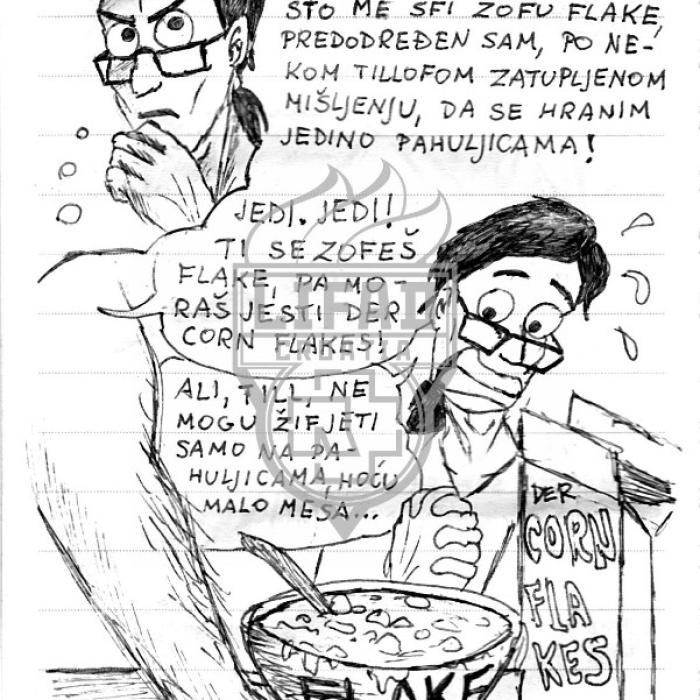 ŠTO ME SFI ZOFU FLAKE,
PREDODREĐEN SAM, PO NE-
KOM TILLOFOM ZATUPLJENOM
MIŠLJENJU, DA SE HRANIM
JEDINO PAHULJICAMA!
JEDI. JEDI!!
TI SE ZOFEŠ
FLAKE, PA MO-
RAŠ JESTI DER
CORN FLAKES!
ALI, TILL, NE
MOGU ŽIFJETI
SAMO NA PA-
HULJICAMA, HOĆU
MALO MESA...
LIFAD
CROATIA
DER
CORN
FLA
KES
FLAKE